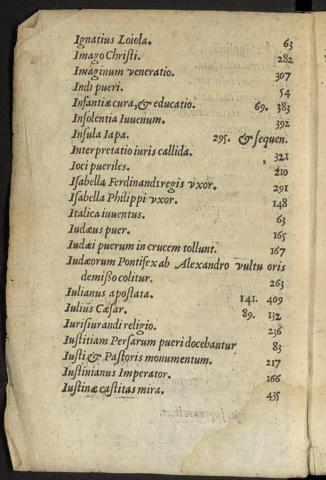 Ignatius Loiola. 63
Imago Christi. 282
Imaginum veneratio. 307
Indi pueri. 54
Infantiæ cura, & educatio. 69. 383
Insolentia Iuuenum. 392
Insula Iapa. 295. & sequen.
Interpretatio iuris callida. 321
Ioci pueriles. 210
Isabella Ferdinandi regis vxor. 291
Isabella Philippi vxor. 148
Italica iuuentus. 63
Iudæus puer. 165
Iudæi puerum in crucem tollunt. 167
Iudæorum Pontifex ab Alexandro vultu oris
demisso colitur. 263
Iulianus apostata. 141. 409
Iulius Cæsar. 89. 132
Iurisiurandi religio. 236
Iustitiam Persarum pueri docebantur 83
Iusti & Pastoris monumentum. 217
Iustinianus Imperator. 166
Iustinæ castitas mira. 435